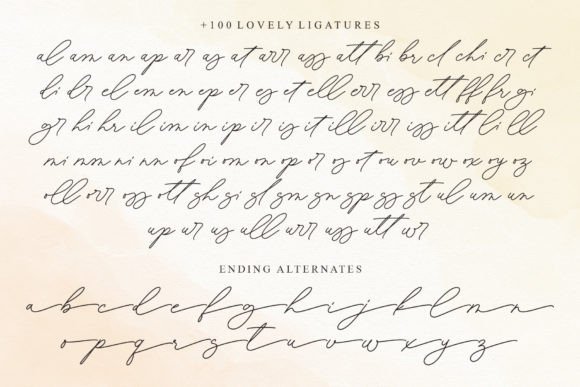 +100 LOVELY LIGATURES
al am an ap ar as at arr ass att bi br cl chi cr ct
di dr el em en ep er es et ell err ess ett ff fr gi
gr hi hr il im in ip ir is it ill irr iss itt li ll
mi nm ni nn of oi om on op or os ot ou ov ow ox oy oz
oll orr oss ott sh si sl sm sn sp ss st ul um un
up ur us ull urr uss utt wr
ENDING ALTERNATES
a b c d e f g h i j k l m n
o p q r s t u v w x y z